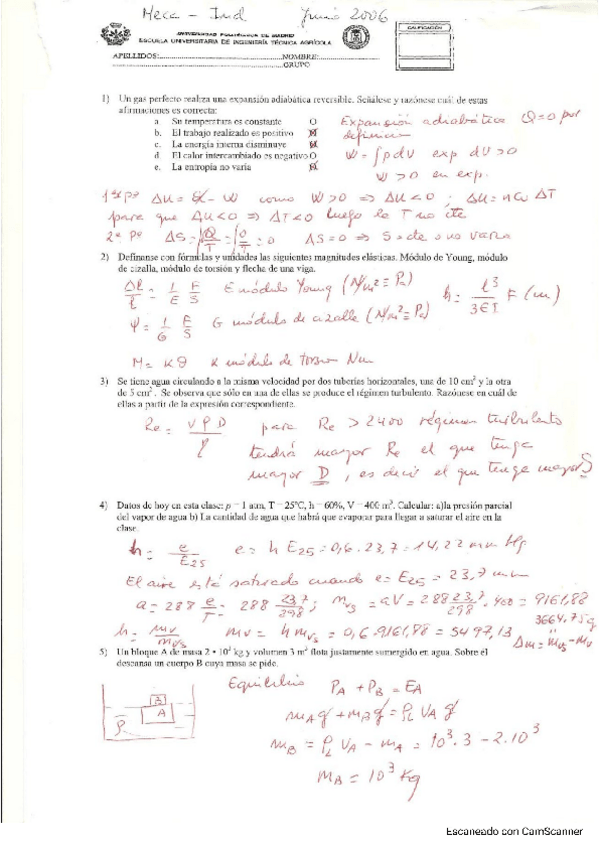 Mecc - Ind Junio 2006
UNIVERSIDAD POLITÉCNICA DE MADRID
ESCUELA UNIVERSITARIA DE INGENIERÍA TÉCNICA AGRÍCOLA
CALIFICACIÓN
APELLIDOS:..........NOMBRE:..........
..........GRUPO
1) Un gas perfecto realiza una expansión adiabática reversible. Señálese y razónese cuál de estas
afirmaciones es correcta:
a. Su temperatura es constante O
b. El trabajo realizado es positivo
c. La energía interna disminuye
d. El calor intercambiado es negativo O
e. La entropía no varía
Expansión adiabática Q=0 por
definición
W = ∫pdV exp dV>0
W>0 en exp.
1er pº ΔU = Q - W como W>0 ⇒ ΔU<0 ; ΔU = nCv ΔT
para que ΔU<0 ⇒ ΔT<0 luego la T no cte
2º pº ΔS = ∫Q/T = ∫0/T = 0 ΔS=0 ⇒ S=cte o no varía
2) Defínanse con fórmulas y unidades las siguientes magnitudes elásticas. Módulo de Young, módulo
de cizalla, módulo de torsión y flecha de una viga.
Δl/l = 1/E F/S E módulo Young (N/m² = Pa) h = l³/3EI F (m)
φ = 1/G F/S G módulo de cizalla (N/m² = Pa)
M = Kθ K módulo de torsión Nm
3) Se tiene agua circulando a la misma velocidad por dos tuberías horizontales, una de 10 cm² y la otra
de 5 cm². Se observa que sólo en una de ellas se produce el régimen turbulento. Razónese en cuál de
ellas a partir de la expresión correspondiente.
Re = VρD/η para Re > 2400 régimen turbulento
tendrá mayor Re el que tenga
mayor D, es decir el que tenga mayor S
4) Datos de hoy en esta clase: p = 1 atm, T = 25ºC, h = 60%, V = 400 m³. Calcular: a)la presión parcial
del vapor de agua b) La cantidad de agua que habrá que evaporar para llegar a saturar el aire en la
clase.
h = e/E25 e = h E25 = 0,6 · 23,7 = 14,22 mm Hg
El aire está saturado cuando e = E25 = 23,7 mm
a = 288 e/T = 288 23,7/298 ; mvs = aV = 288 23,7/298 · 400 = 9161,88
h = mv/mvs mv = h mvs = 0,6 · 9161,88 = 5497,13
3664,75g
Δm = mvs - mv
5) Un bloque A de masa 2 • 10³ kg y volumen 3 m³ flota justamente sumergido en agua. Sobre él
descansa un cuerpo B cuya masa se pide.
Equilibrio PA + PB = EA
B
A
ρ
mA g + mB g = ρL VA g
mB = ρL VA - mA = 10³ · 3 - 2 · 10³
mB = 10³ Kg
Escaneado con CamScanner